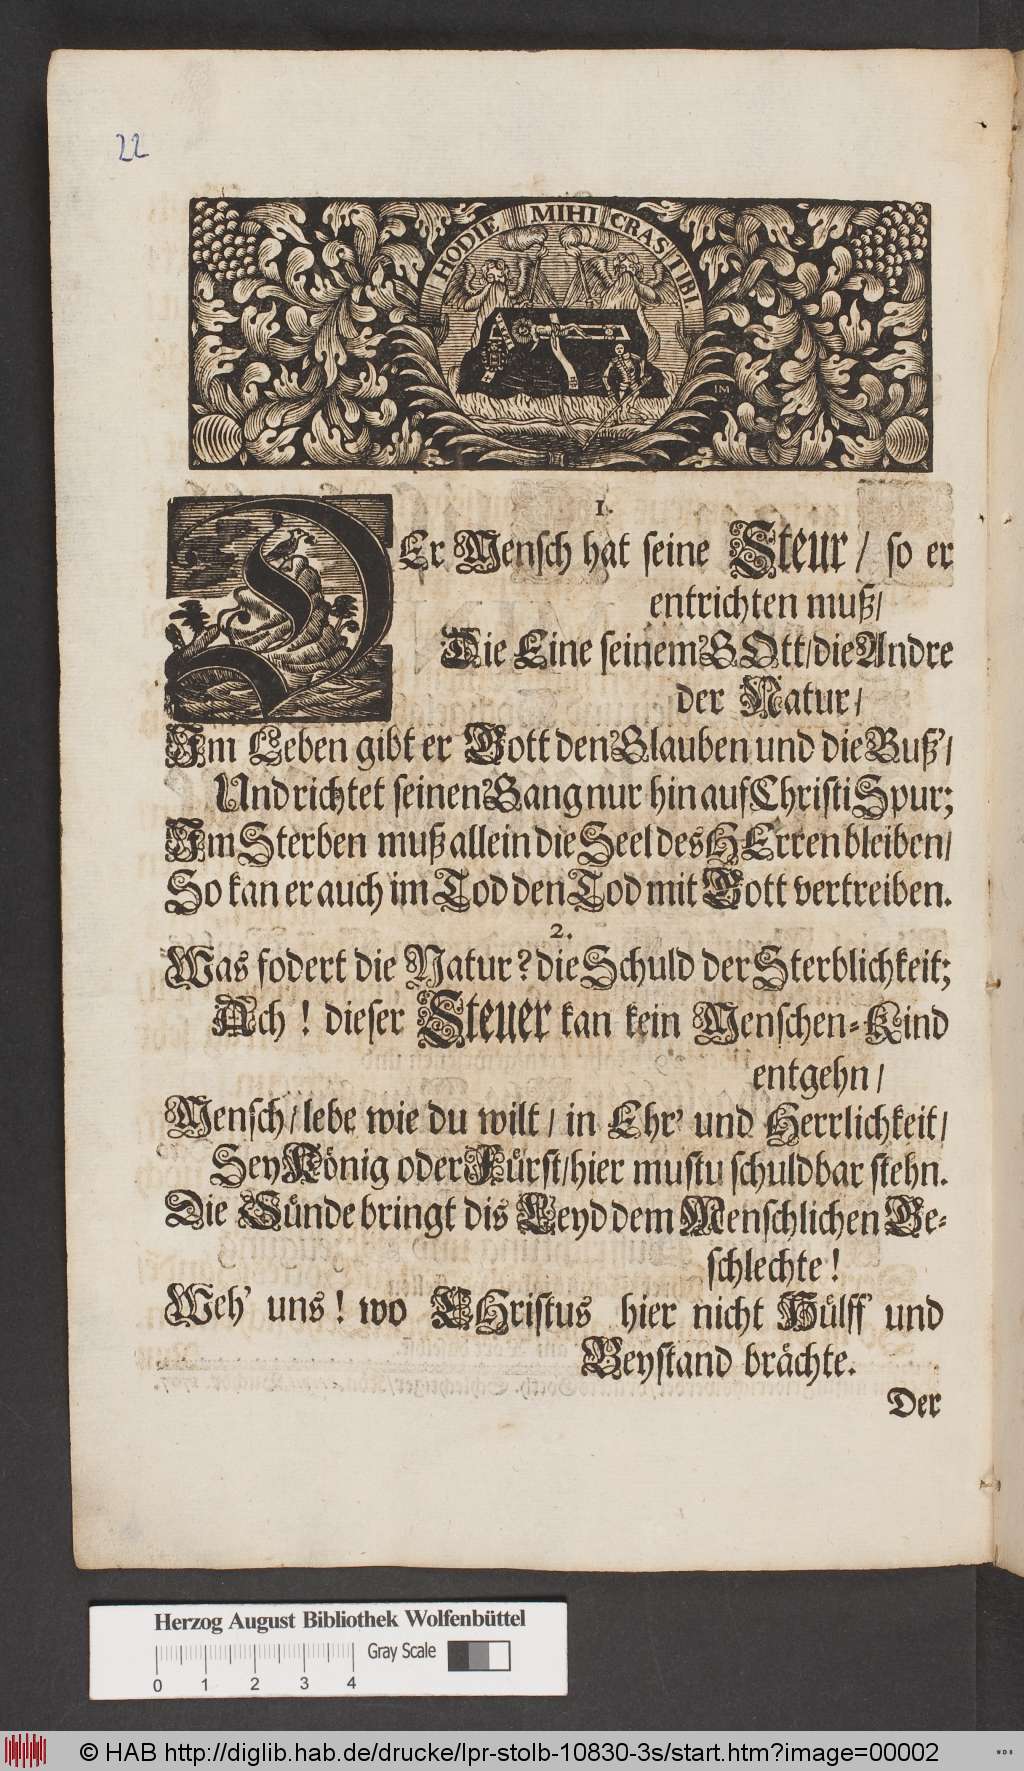 22
HODIE MIHI CRAS TIBI.
IM
1.
DEr Mensch hat seine Steur / so er
entrichten muß /
Die Eine seinem GOtt / die Andre
der Natur /
Im Leben gibt er Gott den Glauben und die Buß' /
Und richtet seinen Gang nur hin auf Christi Spur;
Im Sterben muß allein die Seel des HErren bleiben /
So kan er auch im Tod den Tod mit Gott vertreiben.
2.
Was fodert die Natur? die Schuld der Sterblichkeit;
Ach! dieser Steuer kan kein Menschen-Kind
entgehn /
Mensch / lebe wie du wilt / in Ehr' und Herrlichkeit /
Sey König oder Fürst / hier mustu schuldbar stehn.
Die Sünde bringt dis Leyd dem Menschlichen Ge-
schlechte!
Weh' uns! wo CHristus hier nicht Hülff' und
Beystand brächte.
Der
Herzog August Bibliothek Wolfenbüttel
Gray Scale
0 1 2 3 4
© HAB http://diglib.hab.de/drucke/lpr-stolb-10830-3s/start.htm?image=00002